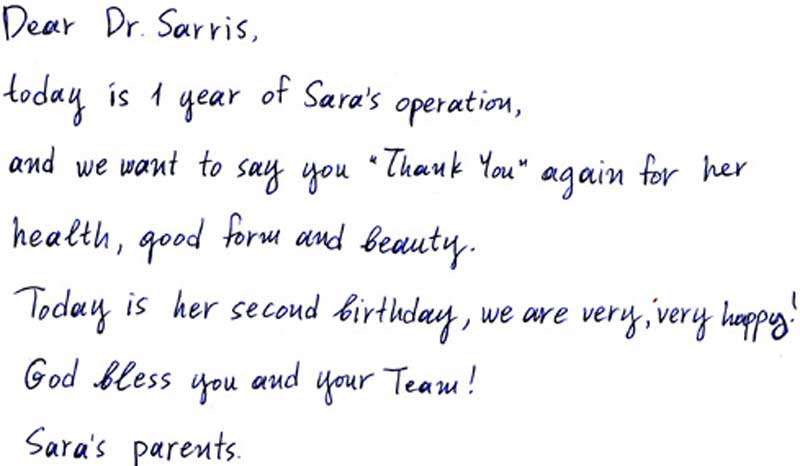 Dear Dr. Sarris,
today is 1 year of Sara's operation,
and we want to say you "Thank You" again for her
health, good form and beauty.
Today is her second birthday, we are very, very happy!
God bless you and your Team!
Sara's parents.